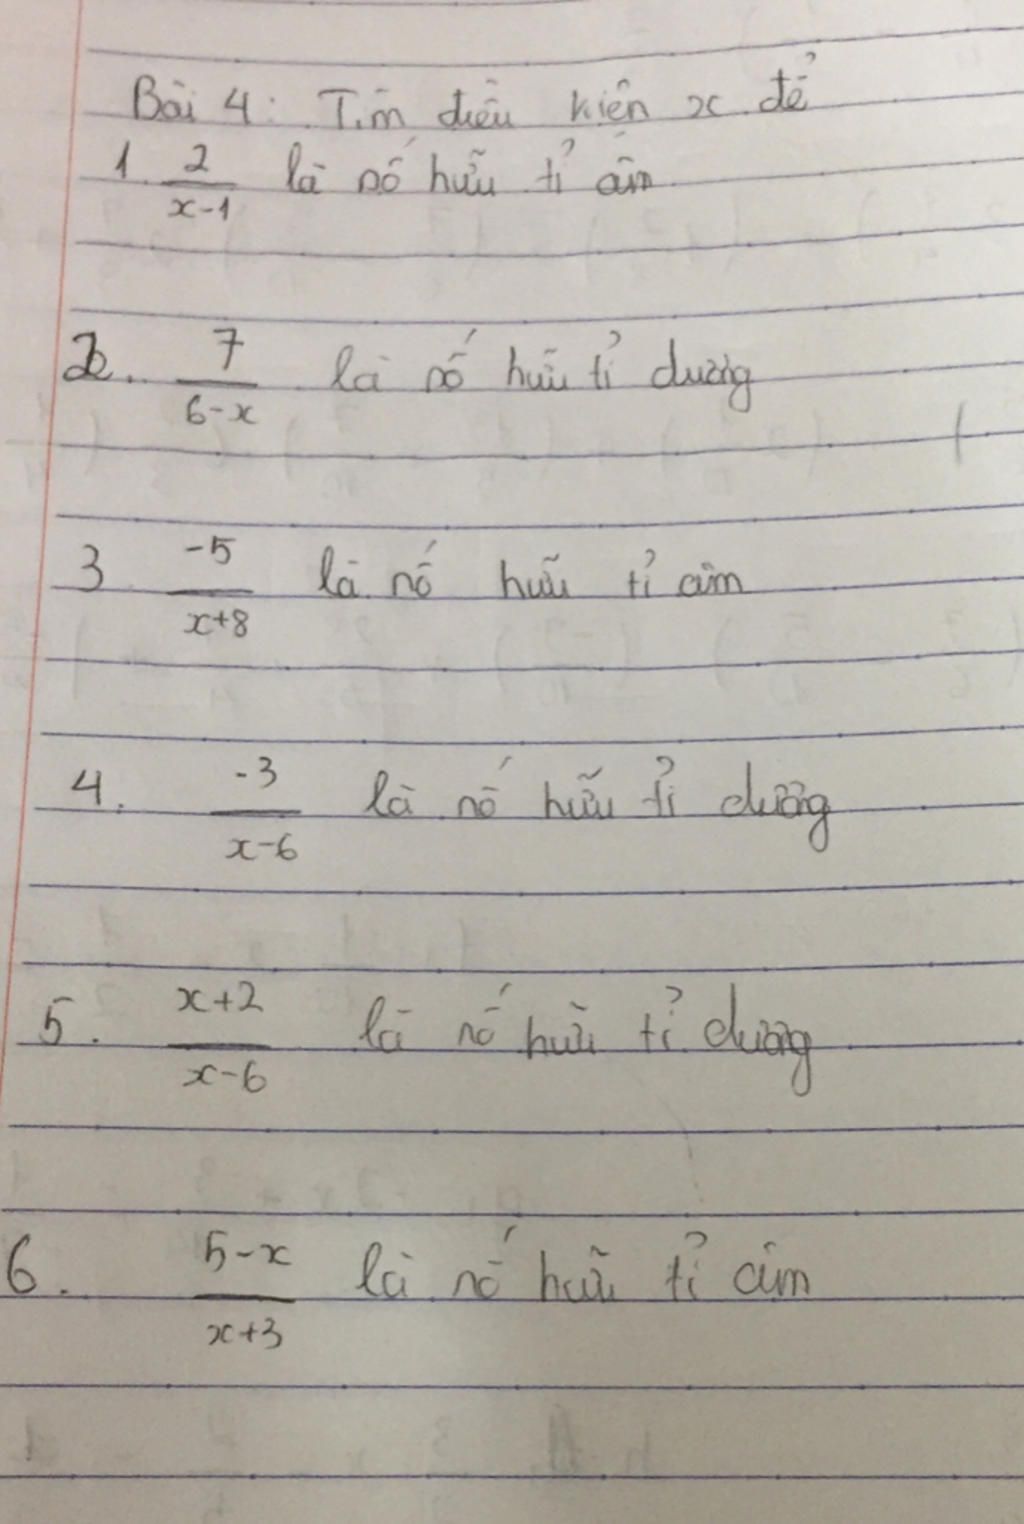 Bài 4: Tìm điều kiện x để
1. 2/(x-1) là số hữu tỉ âm
2. 7/(6-x) là số hữu tỉ dương
3 -5/(x+8) là số hữu tỉ âm
4. -3/(x-6) là số hữu tỉ dương
5. (x+2)/(x-6) là số hữu tỉ dương
6. (5-x)/(x+3) là số hữu tỉ âm